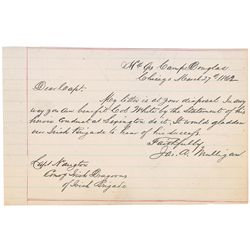 Hd Qrs Camp Douglas
Chicago March 27th 1862
Dear Capt:
My letter is at your disposal. In any
way you can benefit Col White by the statement of his
heroic conduct at Lexington do it. It would gladden
our Irish Brigade to hear of his success
Faithfully
Jas. A. Mulligan
Capt Naughton
Comdg Irish Dragoons
of Irish Brigade